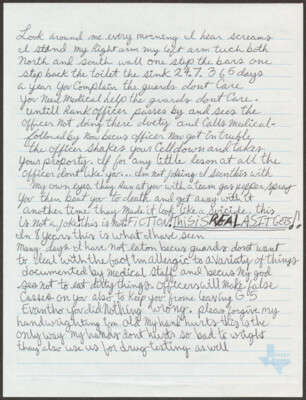 Look around me every morning I hear screams
I stand my Right arm my left arm tuch both
North and south wall one step the bars one
step back the toilet the sink 24.7. 365 days
a year you Complain the guards dont Care
You Need Medical help the guards dont Care.
untill Rank officer passes by and sees the
officer Not doing there duty and Calls Medical.
followed by Now becus officer Now got In truble
the officer shakes your Cell down and takes
your property. If for any little leson at all the
officer dont like you... Im not Joking I seen this with
My own eyes they Run at you with a team gas pepper spray
You then beat you to death and get away with it
another time they Made it look like a suicide. this
is Not a Joke this is Not FICTION THIS IS REAL AS IT GETS!.
In 8 years this is what I have seen
Many days I have not eaton becus guards dont want
to deal with the fact Im allergic to a Variety of things
documented by Medical staff and becus My god
ses not to eat dirty things. Officers will Make false
Casses on you also to keep you frome leaving G5
Evantho you did Nothing wrong. pleas forgive my
handwrighting Im old My hand hurts this is the
only way My hands dont hurts so bad to wright
they also use us for drug testing as well